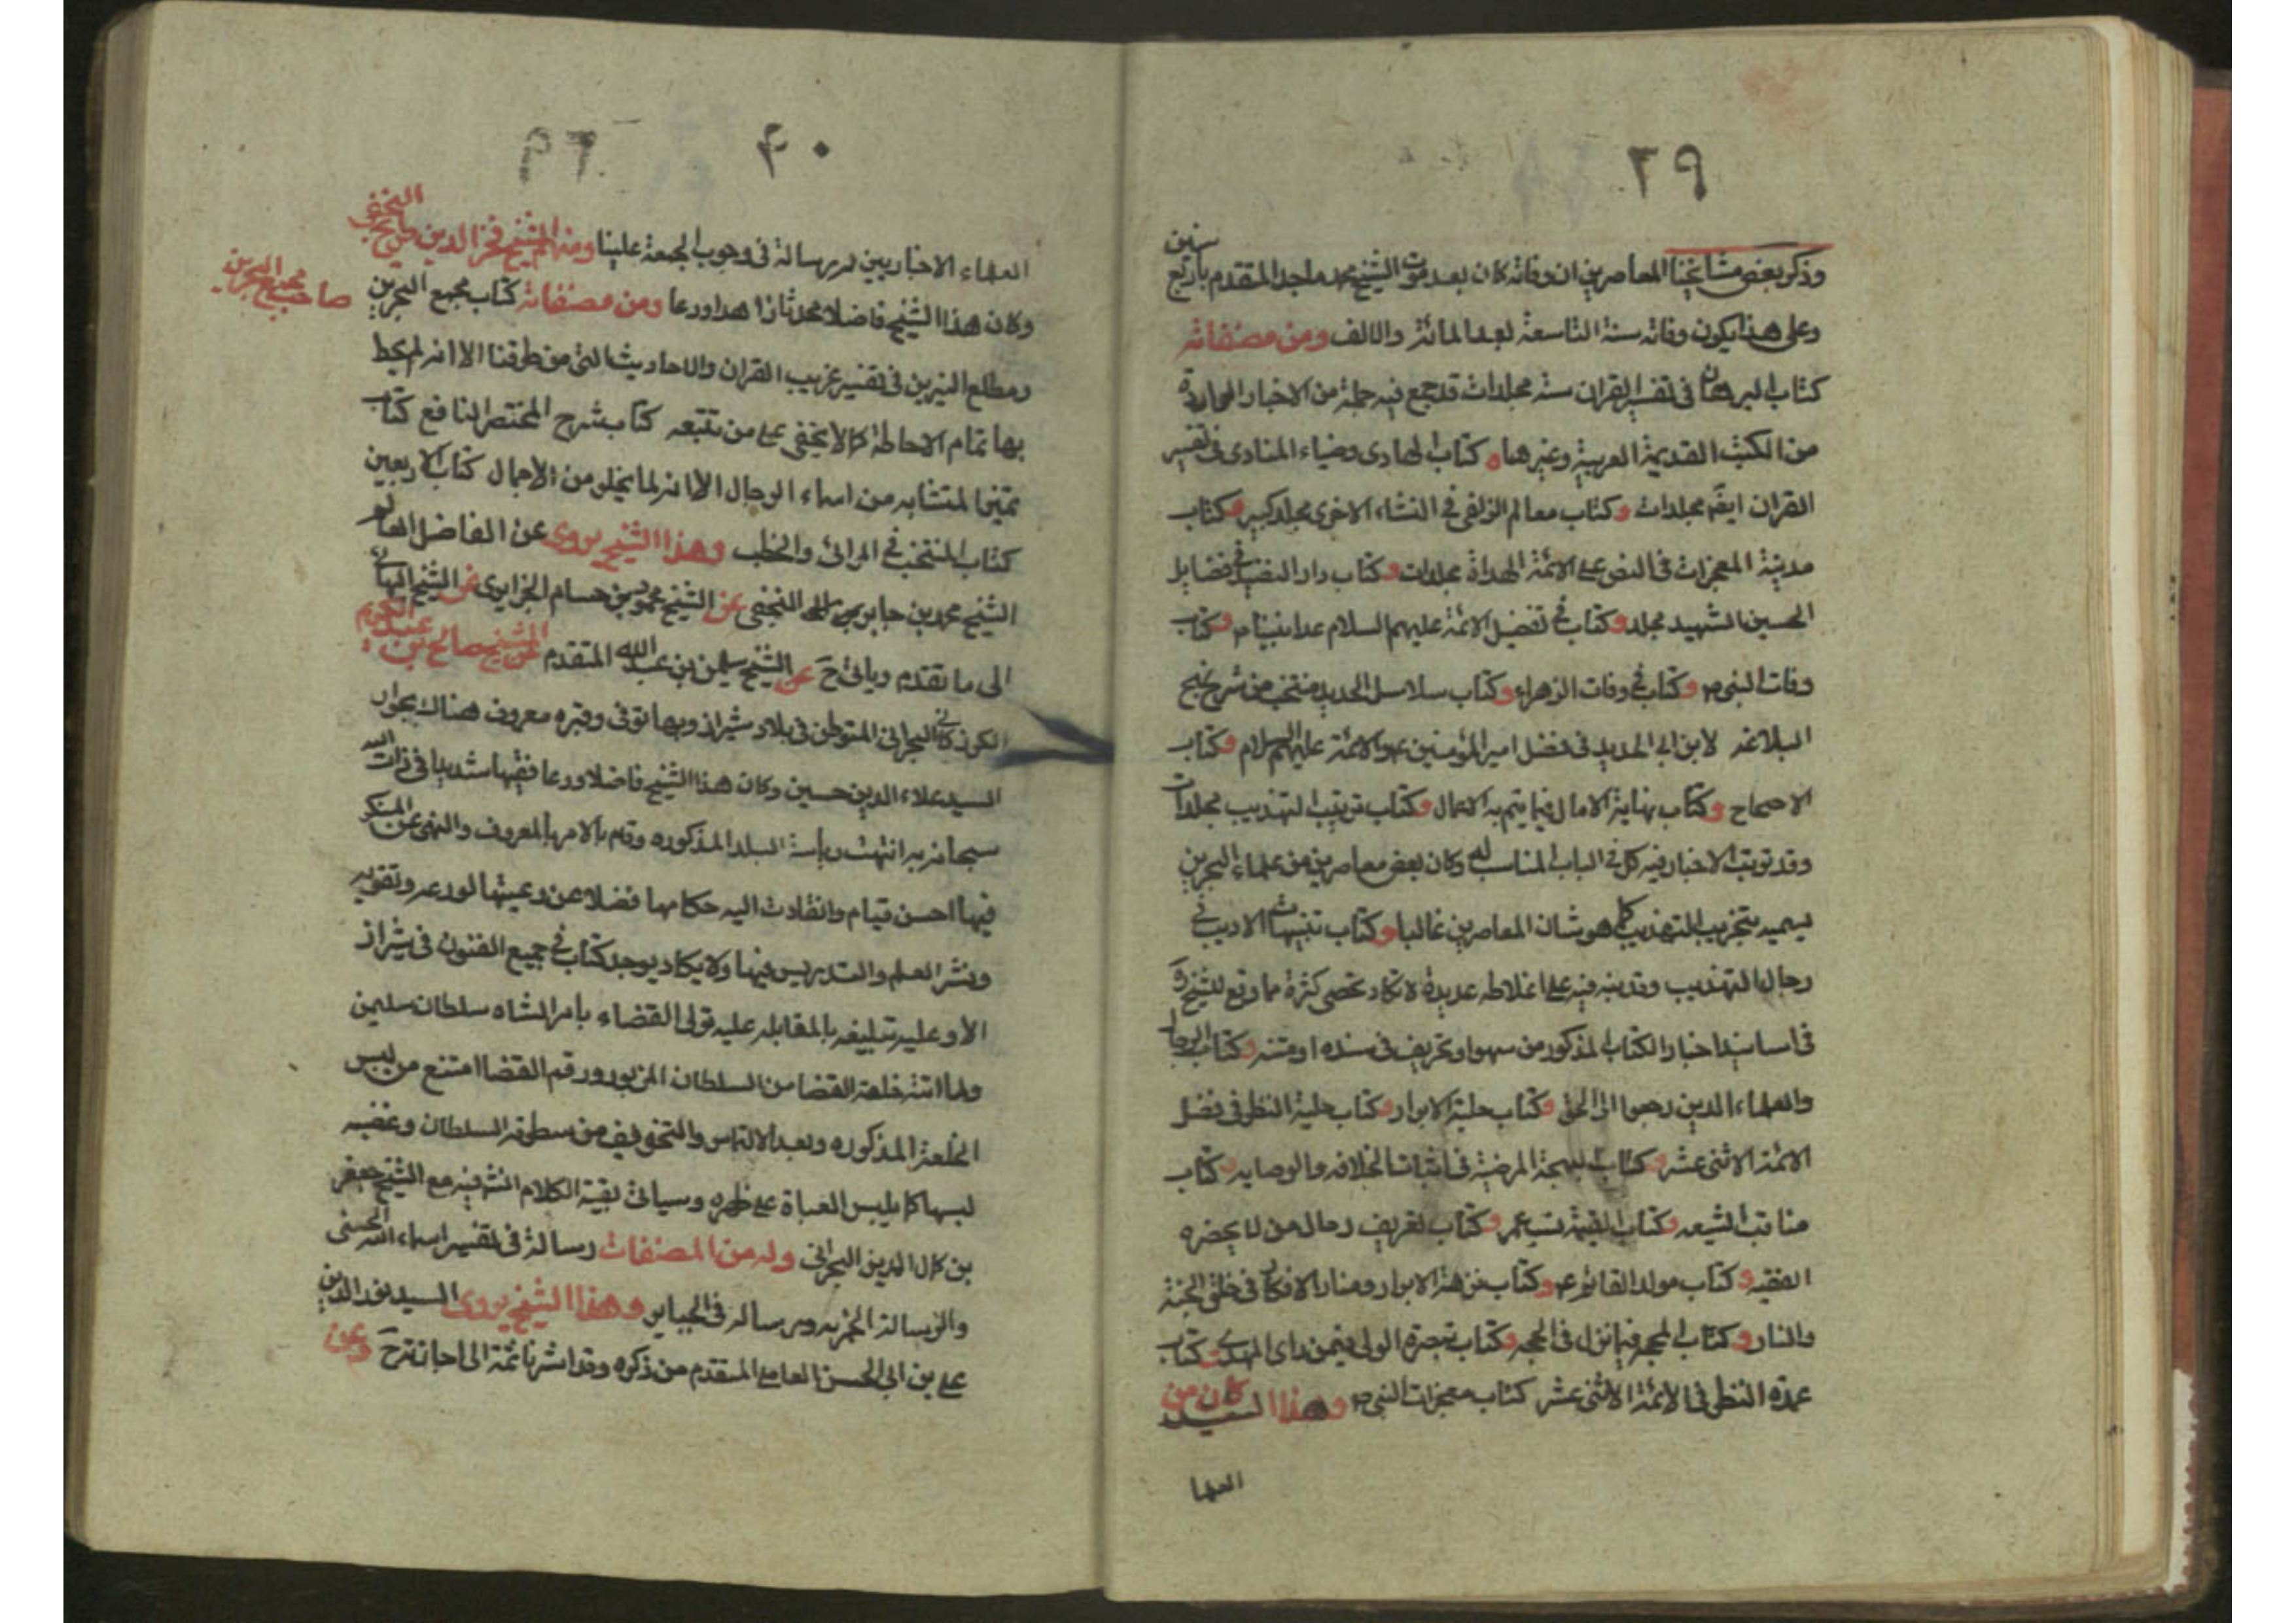 ٣٩
وذكر بعض مشايخنا المعاصرين ان وفاته كان بعد موت الشيخ محمد ماجد المتقدم باربع سنين
وعلى هذا يكون وفاته سنة التاسعة بعد المائة والالف ومن مصنفاته
كتاب البرهان في تفسير القران ستة مجلدات قد جمع فيه جملة من الاخبار الواردة
من الكتب القديمة الغريبة وغيرها وكتاب الهادى وضياء النادى في تفسير
القران ايضا مجلدات وكتاب معالم الزلفى في النشاء الاخرى مجلد كبير وكتاب
مدينة المعجزات في النص على الائمة الهداة مجلدات وكتاب دار النضيد في فضايل
الحسين الشهيد مجلد وكتاب في تفضيل الائمة عليهم السلام عدا نبينا م وكتاب
وفات النبي م وكتاب في وفات الزهراء وكتاب سلاسل الحديد منتخب من شرح نهج
البلاغه لابن ابي الحديد في فضل امير المؤمنين ع والائمة عليهم السلام وكتاب
الاحجاج وكتاب نهاية الامال فيما يتم به الاعمال وكتاب ترتيب التهذيب مجلدات
وقد توتب الاخبار فيه كل في الباب المناسب له وكان بعض معاصرين من علماء البحرين
يسميه بتخريب التهذيب كما هو شان المعاصرين غالبا وكتاب تنبيهات الاديب في
رجال التهذيب وقد نبه فيه على اغلاطه عديدة لا تكاد تحصى كثرة مما وقع للشيخ ره
في اسانيد اخبار الكتاب المذكور من سهو او تحريف في سنده او متنه وكتاب الرجال
والعلماء الذين رجعوا الى الحق وكتاب حلية الابرار وكتاب حلية النظر في فضل
الائمة الاثنى عشر وكتاب البهجة المرضية في اثبات الخلافه والوصايه وكتاب
مناقب الشيعه وكتاب اليتيمة وكتاب تعريف رجال من لا يحضره
الفقيه وكتاب مولد القائم ع وكتاب نزهة الابرار ومنار الافكار في خلق الجنة
والنار وكتاب المحجه فيما نزل في الحجه وكتاب تبصرة الولى فيمن راى المهدى وكتاب
عمدة النظر في الائمة الاثنى عشر كتاب معجزات النبي م وهذا السيد كان من
العلما
٤٠ ٩٦
العلماء الاخباريين له رسالة في وجوب الجمعة علينا ومنهم الشيخ فخر الدين طريح النجفى
صاحب مجمع البحرين
وكان هذا الشيخ فاضلا محدثا زاهدا ورعا ومن مصنفاته كتاب مجمع البحرين
ومطلع النيرين في تفسير غريب القران والاحاديث التي من طرقنا الا انه لم يحط
بها تمام الاحاطة كما لا يخفى على من تتبعه كتاب شرح المختصر النافع كتاب
تمييز المتشابه من اسماء الرجال الا انه لما يخلو من الاجمال كتاب الاربعين
كتاب المنتخب في المراثي والخطب وهذا الشيخ يروى عن الفاضل العالم
الشيخ محمد بن جابر النجفي عن الشيخ محمود بن حسام الجزايرى عن الشيخ البهائي
الى ما تقدم وياتى ح عن الشيخ سليمن بن عبد الله المتقدم عن الشيخ صالح بن عبد الكريم
الكرزكاني البحراني المتوطن في بلاد شيراز وبها توفى وقبره معروف هناك بجوار
السيد علاء الدين حسين وكان هذا الشيخ فاضلا ورعا فقيها شديدا في ذات الله
سبحانه به انتهت رياسة البلد المذكوره وقام بالامر بالمعروف والنهى عن المنكر
فيها احسن قيام وانقادت اليه حكامها فضلا عن رعيتها لورعه وتقويه
ونشر العلم والتدريس فيها ولا يكاد يوجد كتاب في جميع الفنون في شيراز
الا وعليه تبليغه بالمقابله عليه تولى القضاء بامر الشاه سلطان سليمن
ولما اتته خلعة القضا من السلطان المزبور ورقم القضا امتنع من لبس
الخلعة المذكوره وبعد الالتماس والتخويف من سطوة السلطان وغضبه
لبسها كما يلبس العباة على ظهره وسياتى بقية الكلام فيه مع الشيخ جعفر
بن كمال الدين البحراني وله من المصنفات رسالة في تفسير اسماء الله الحسنى
والرسالة الخمريه ورسالة في الجباير وهذا الشيخ يروى السيد نور الدين
على بن ابى الحسن العاملى المتقدم من ذكره وقد اشرنا ثمة الى اجازته ح وعن